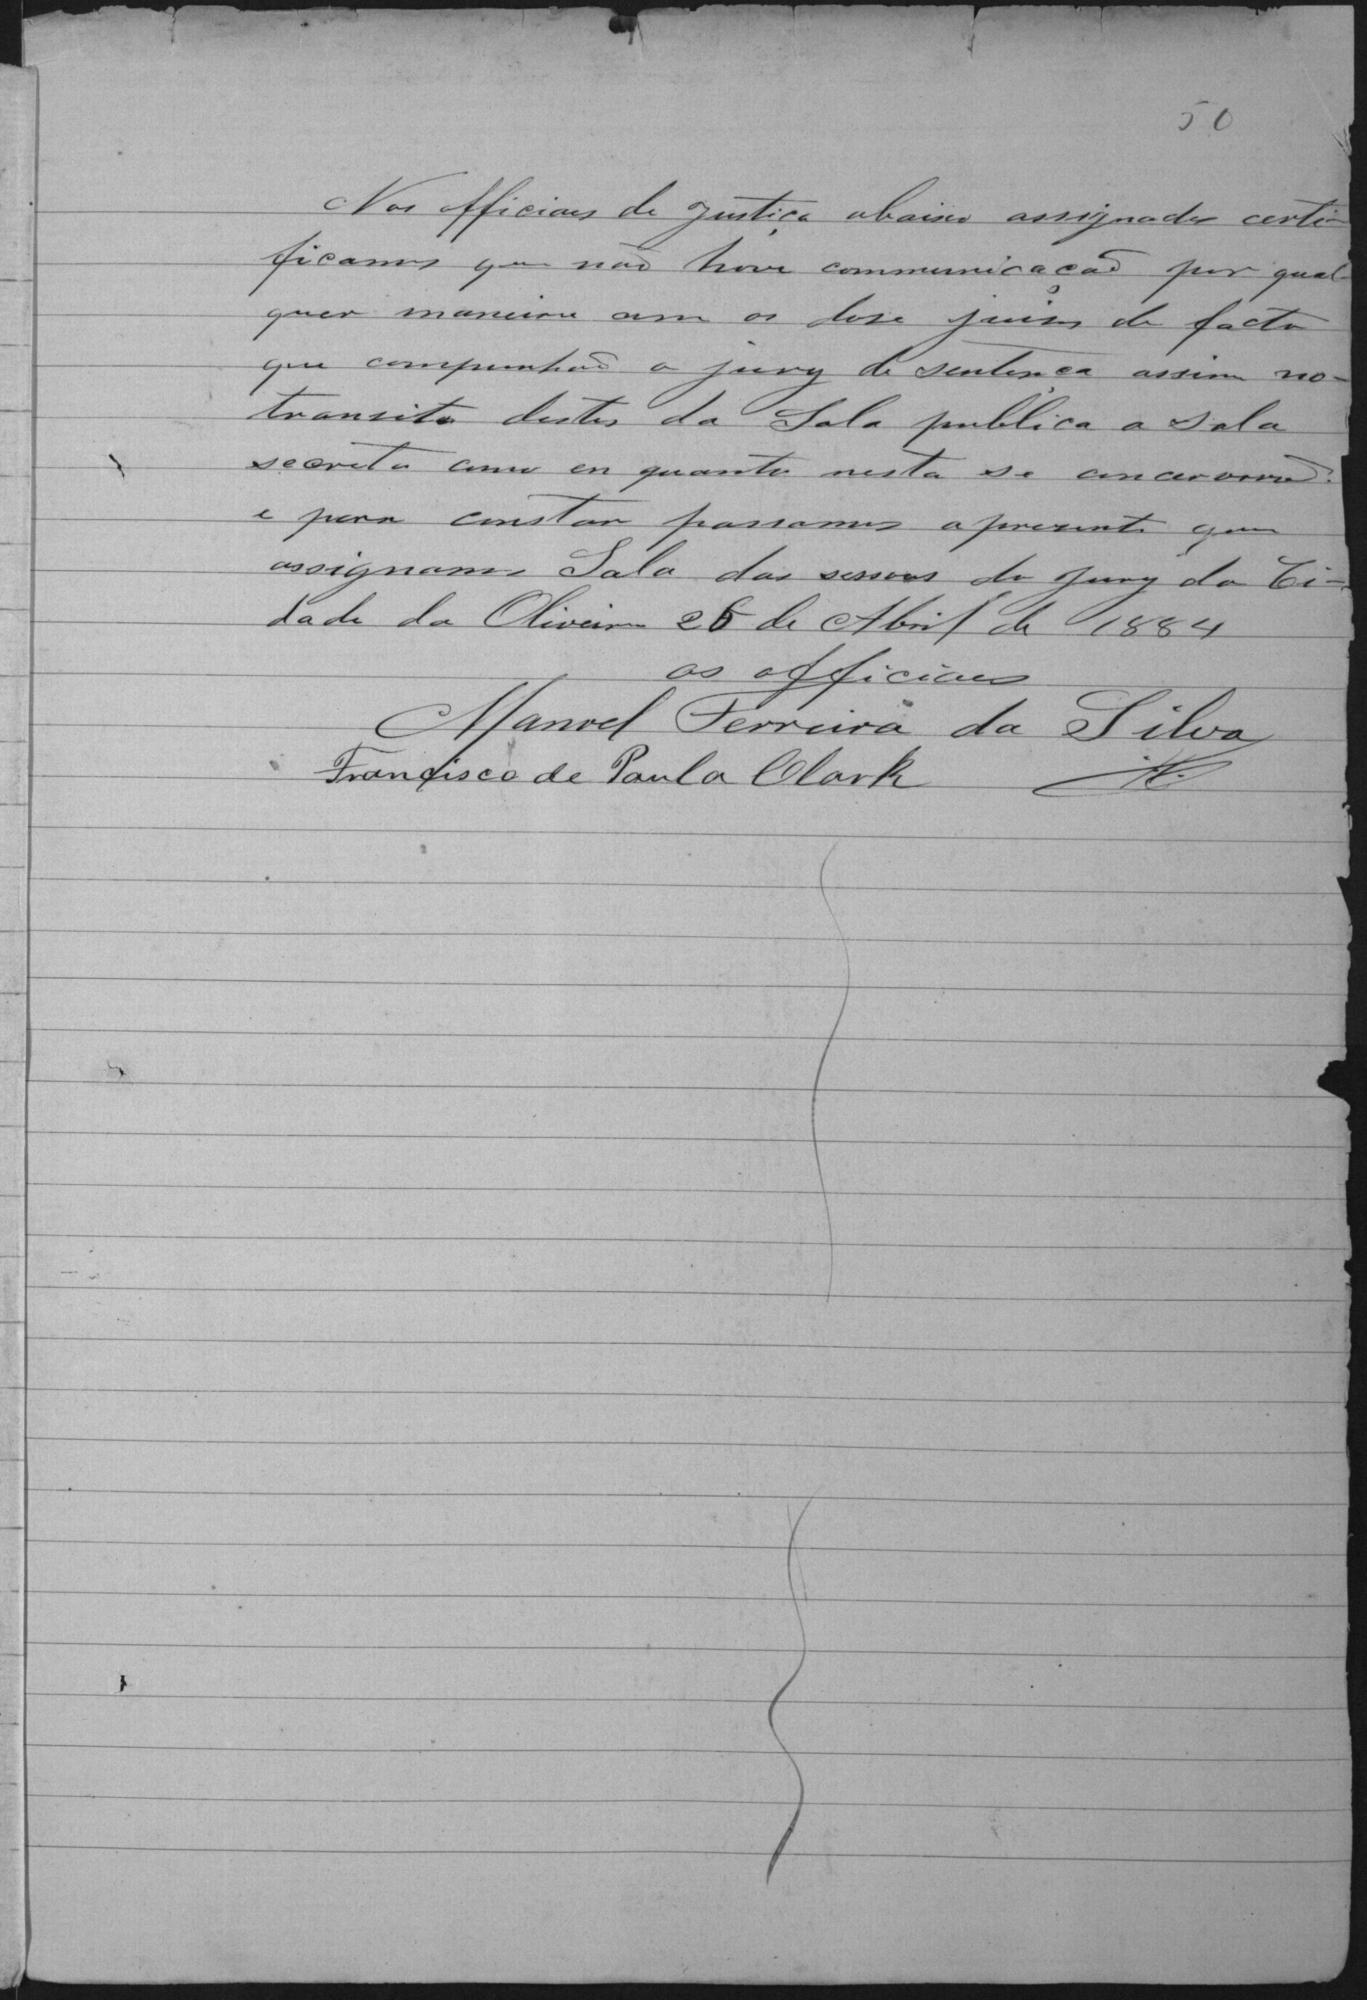 50
Nos officiaes de Justiça abaixo assignados certi-
ficamos que não hove communicacaõ por qual-
quer maneira com os dose juises de facto
que compunhaõ o jury de sentença assim no-
transito destes da Sala publica a Sala
secreta como en quanto nesta se concervaraõ.
e para constar passamos a prezente que
assignamos Sala das sessoes do Jury da Ci-
dade da Oliveira 26 de Abril de 1884
os officiaes
Manoel Ferreira da Silva
Francisco de Paula Clark